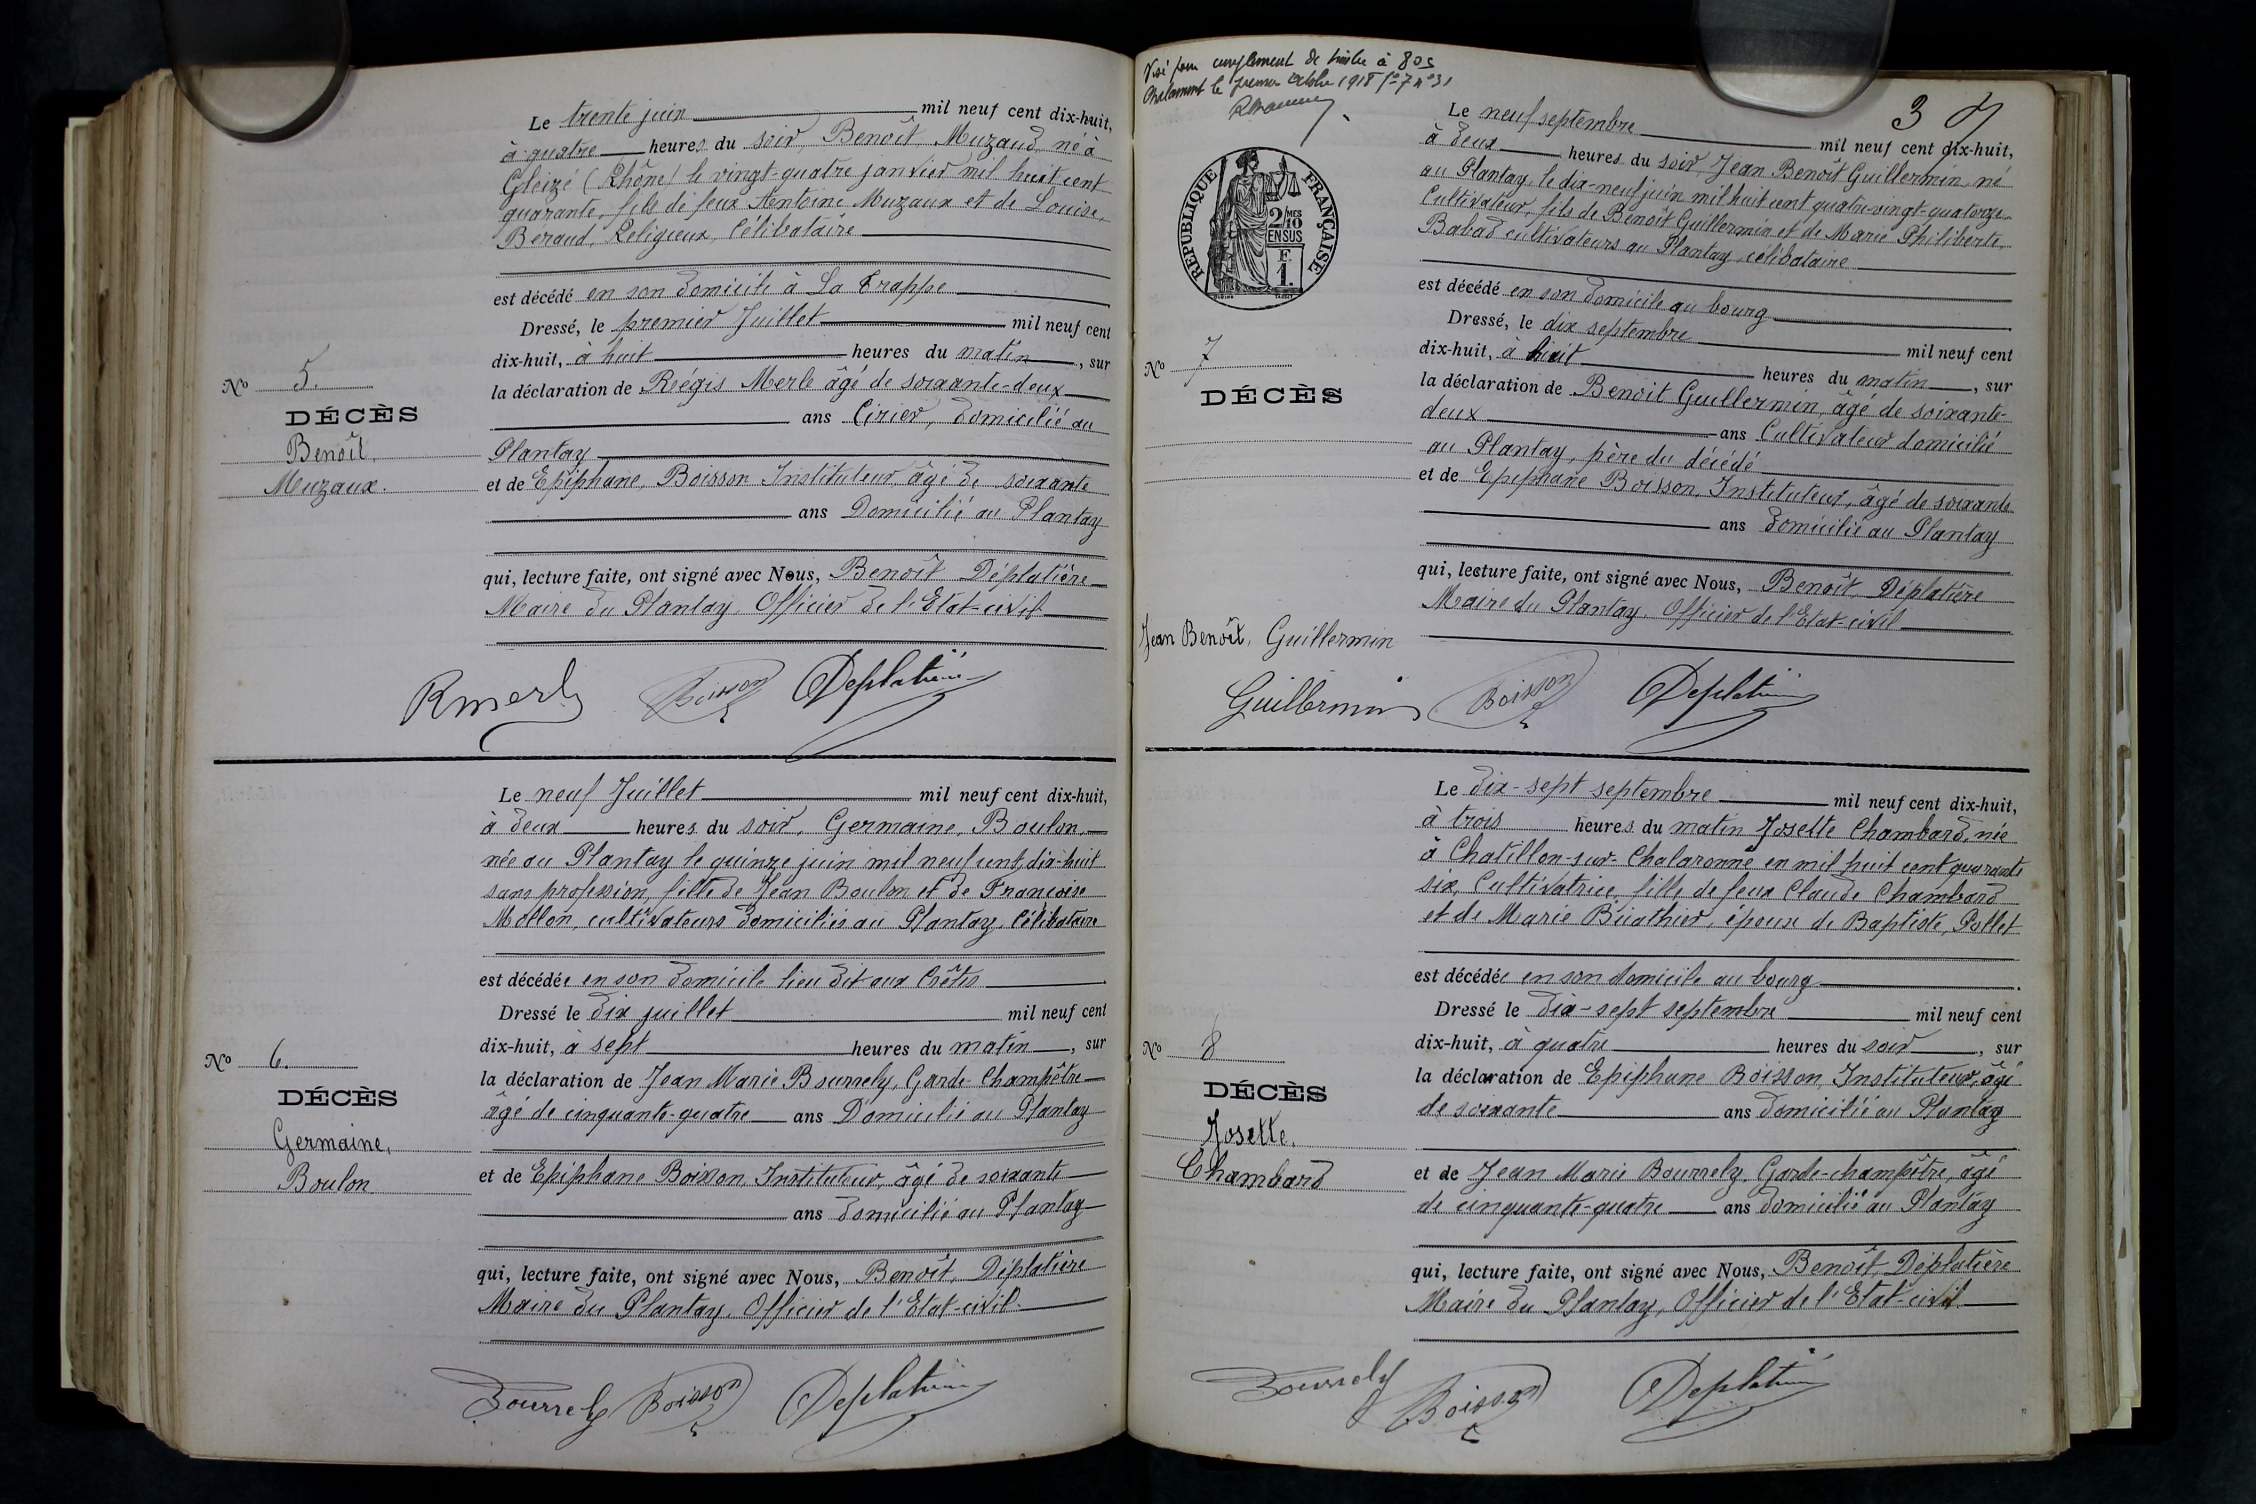 Le trente juin mil neuf cent dix-huit,
à quatre heures du soir, Benoît Muzaud né à
Gleizé (Rhône) le vingt-quatre janvier mil huit cent
quarante, fils de feux Antoine Muzaux et de Louise,
Béraud, Religieux, Célibataire
est décédé en son domicile à La Trappe
Dressé, le premier Juillet mil neuf cent
dix-huit, à huit heures du matin, sur
la déclaration de Régis Merle âgé de soixante-deux
ans Cirier, domicilié au
Plantay
et de Epiphane, Boisson Instituteur âgé de soixante
ans Domicilié au Plantay
qui, lecture faite, ont signé avec Nous, Benoît Déplatière
Maire du Plantay Officier de l'Etat-civil
No 5.
DÉCÈS
Benoît,
Muzaux.
Rmerle Boisson Deplatière
Le neuf Juillet mil neuf cent dix-huit,
à deux heures du soir, Germaine, Boulon,
née au Plantay le quinze juin mil neuf cent dix-huit
sans profession, fille de Jean Boulon et de Françoise
Mollon, cultivateurs domiciliés au Plantay, Célibataire
est décédée en son domicile lieu dit aux Crêtes
Dressé le dix juillet mil neuf cent
dix-huit, à sept heures du matin, sur
la déclaration de Jean Marie Bourrely, Garde-Champêtre
âgé de cinquante-quatre ans Domicilié au Plantay
et de Epiphane Boisson, Instituteur, âgé de soixante
ans domicilié au Plantay
qui, lecture faite, ont signé avec Nous, Benoît, Déplatière
Maire du Plantay, Officier de l'Etat-civil.
No 6.
DÉCÈS
Germaine,
Boulon
Bourrely Boisson Deplatière
Visé pour complément de timbre à 80c
Chalamont le premier octobre 1918 fo 7 no 31
3
RÉPUBLIQUE FRANÇAISE
2/10MES
EN SUS
F.
1.
Le neuf septembre mil neuf cent dix-huit,
à deux heures du soir, Jean Benoît Guillermin, né
au Plantay, le dix-neuf juin mil huit cent quatre-vingt-quatorze
Cultivateur, fils de Benoît Guillermin et de Marie Philiberte
Babad cultivateurs au Plantay, célibataire
est décédé en son domicile au bourg
Dressé, le dix septembre mil neuf cent
dix-huit, à huit heures du matin, sur
la déclaration de Benoit Guillermin, âgé de soixante-
deux ans Cultivateur domicilié
au Plantay, père du décédé
et de Epiphane Boisson, Instituteur, âgé de soixante
ans domicilié au Plantay
qui, lecture faite, ont signé avec Nous, Benoît, Déplatière
Maire du Plantay, Officier de l'Etat-civil
No 7
DÉCÈS
Jean Benoît, Guillermin
Guillermin Boisson Deplatière
Le dix-sept septembre mil neuf cent dix-huit,
à trois heures du matin Josette Chambard, née
à Chatillon-sur-Chalaronne en mil huit cent quarante
six, Cultivatrice, fille de feux Claude Chambard
et de Marie Buathier, épouse de Baptiste, Pollet
est décédée en son domicile au bourg
Dressé le dix-sept septembre mil neuf cent
dix-huit, à quatre heures du soir, sur
la déclaration de Epiphane Boisson, Instituteur, âgé
de soixante ans domicilié au Plantay
et de Jean Marie Bourrely, Garde-champêtre, âgé
de cinquante-quatre ans domicilié au Plantay
qui, lecture faite, ont signé avec Nous, Benoît, Déplatière
Maire du Plantay, Officier de l'Etat-civil
No 8
DÉCÈS
Josette,
Chambard
Bourrely Boisson Deplatière